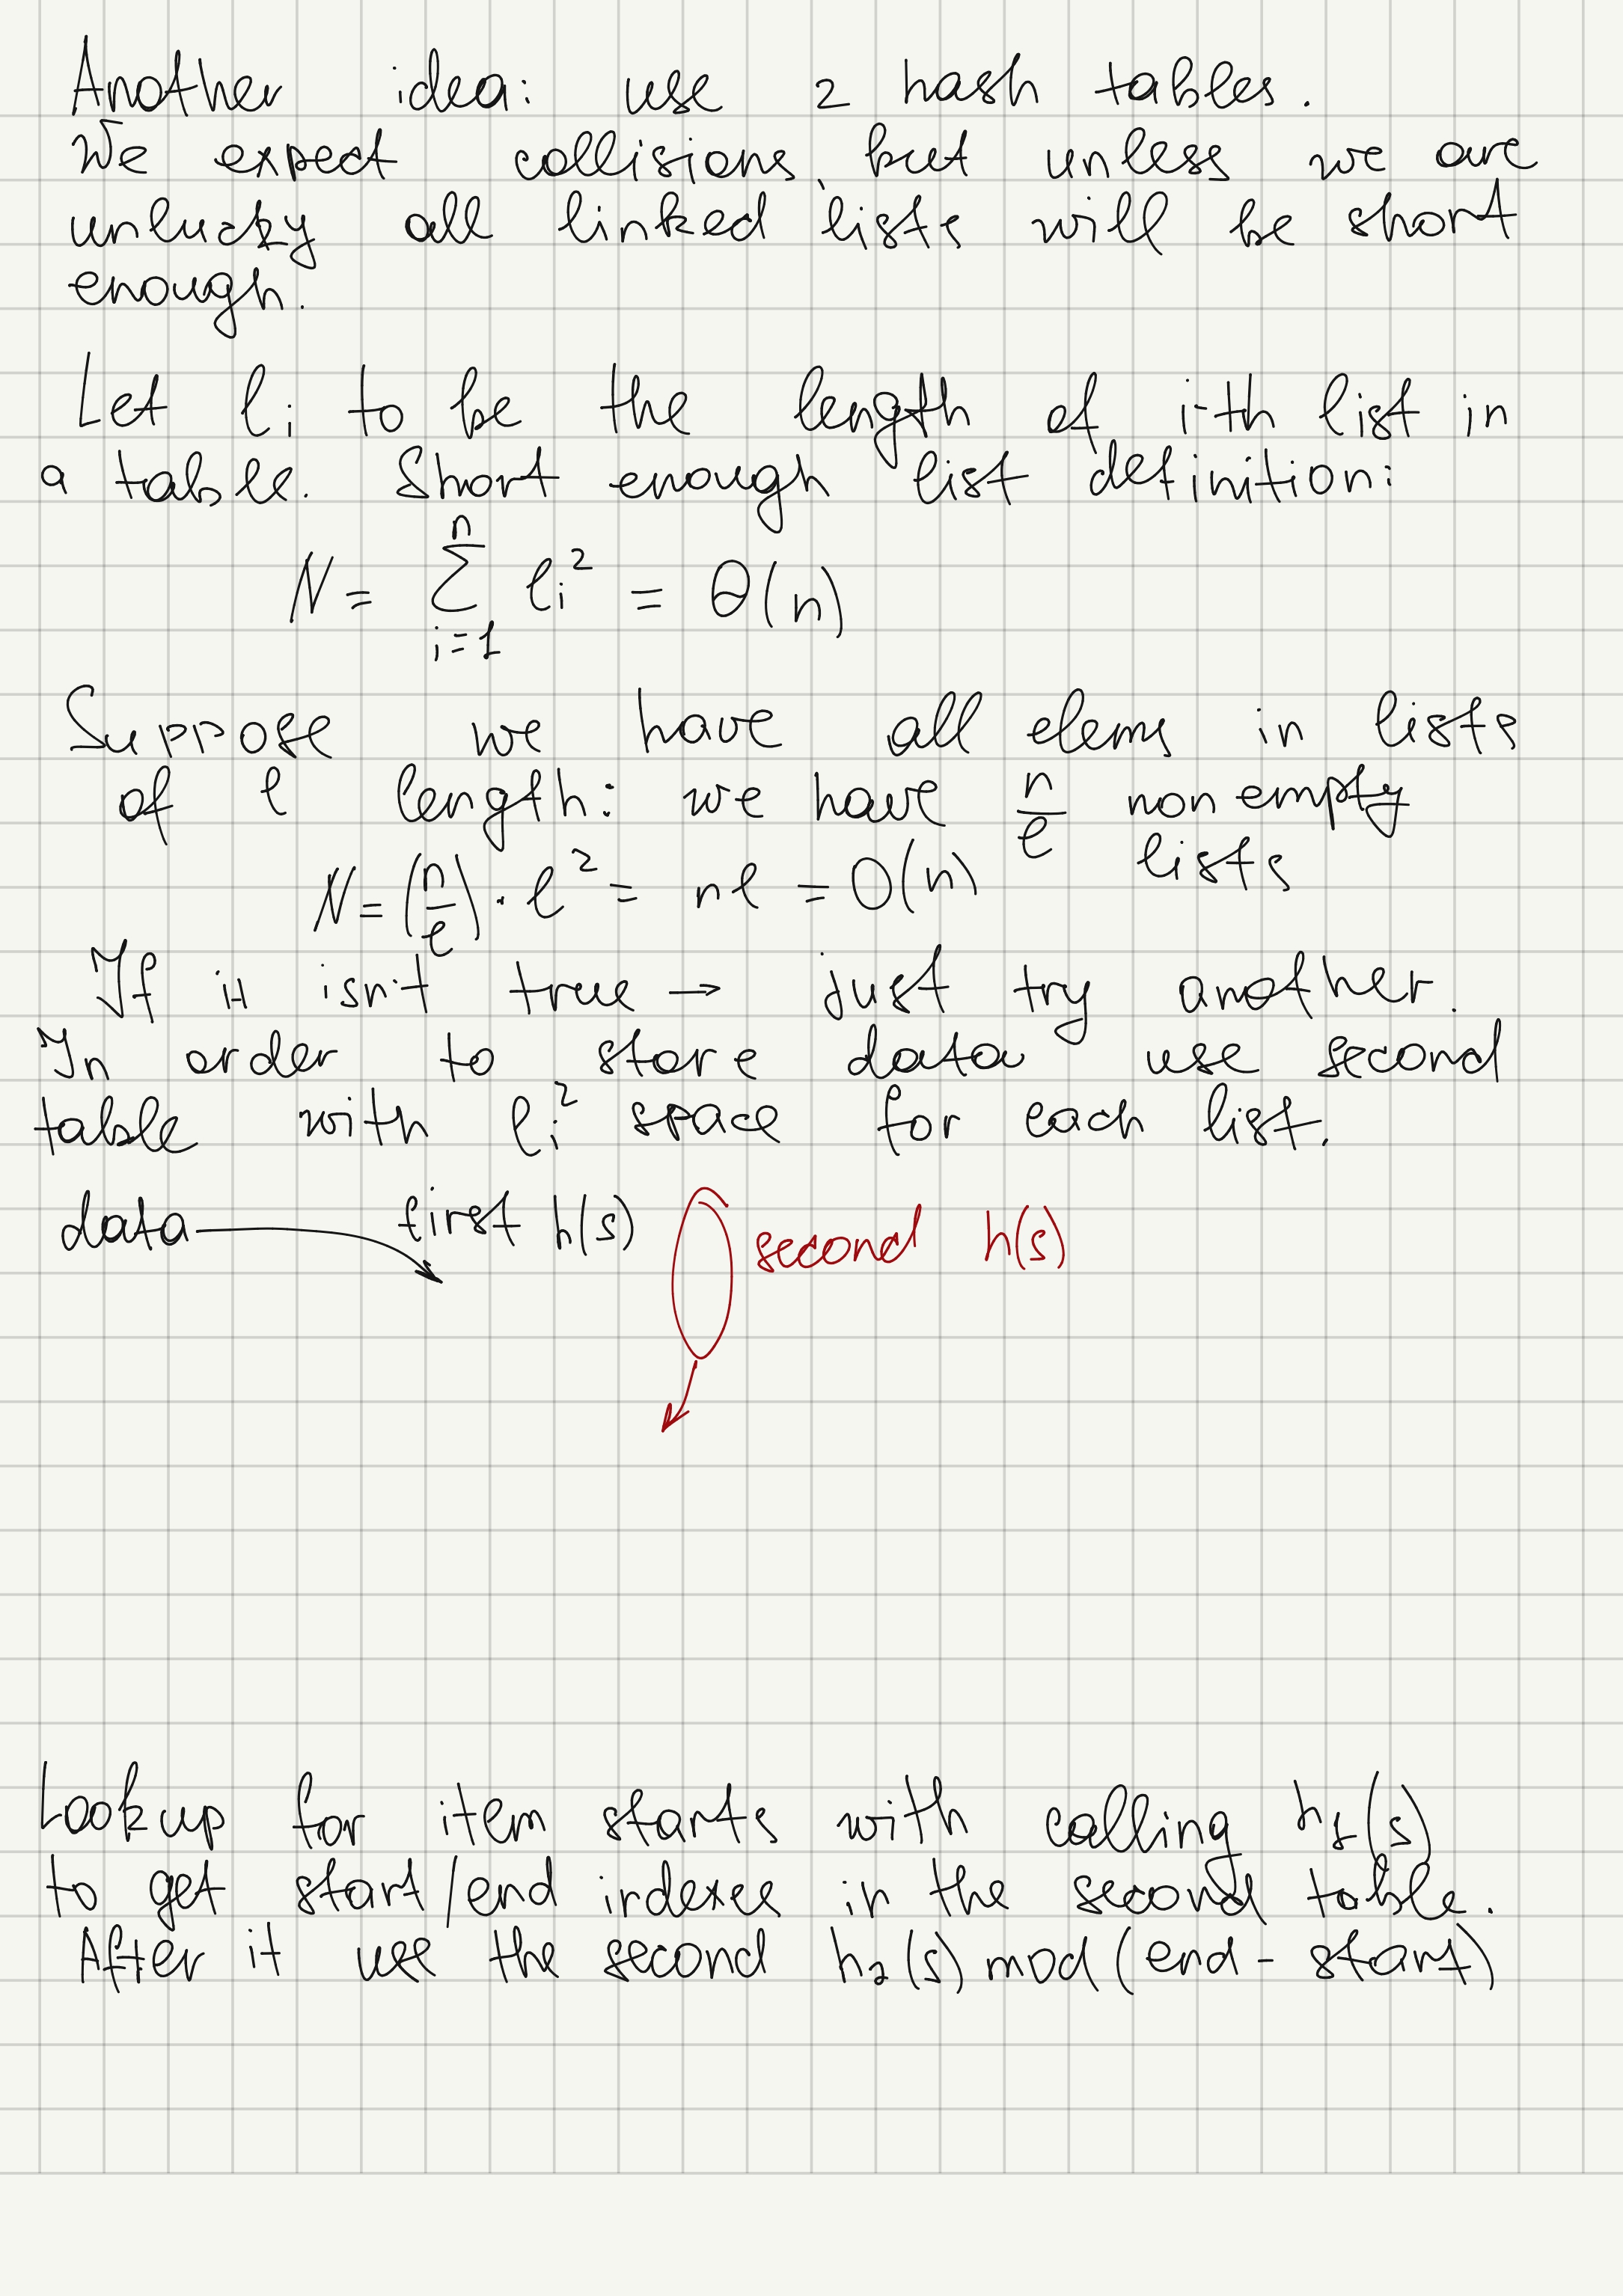 Another idea: use 2 hash tables.
We expect collisions, but unless we are
unlucky all linked lists will be short
enough.
Let li to be the length of i-th list in
a table. Short enough list definition:
N = ∑_{i=1}^{n} li² = Θ(n)
Suppose we have all elems in lists
of l length: we have n/l nonempty
lists
N = (n/l) · l² = nl = O(n)
If it isn't true → just try another.
In order to store data use second
table with li² space for each list.
data first h(s) second h(s)
Lookup for item starts with calling h₁(s)
to get start/end indexes in the second table.
After it use the second h₂(s) mod (end - start)